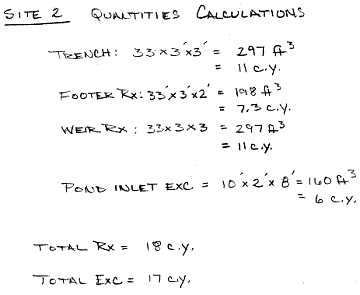 SITE 2 QUALTITIES CALCULATIONS
TRENCH: 33'x3'x3' = 297 ft³
= 11 c.y.
FOOTER Rx: 33'x3'x2' = 198 ft³
= 7.3 c.y.
WEIR Rx: 33x3x3 = 297 ft³
= 11 c.y.
POND INLET EXC = 10'x2'x8' = 160 ft³
= 6 c.y.
TOTAL Rx = 18 c.y.
TOTAL EXC = 17 c.y.